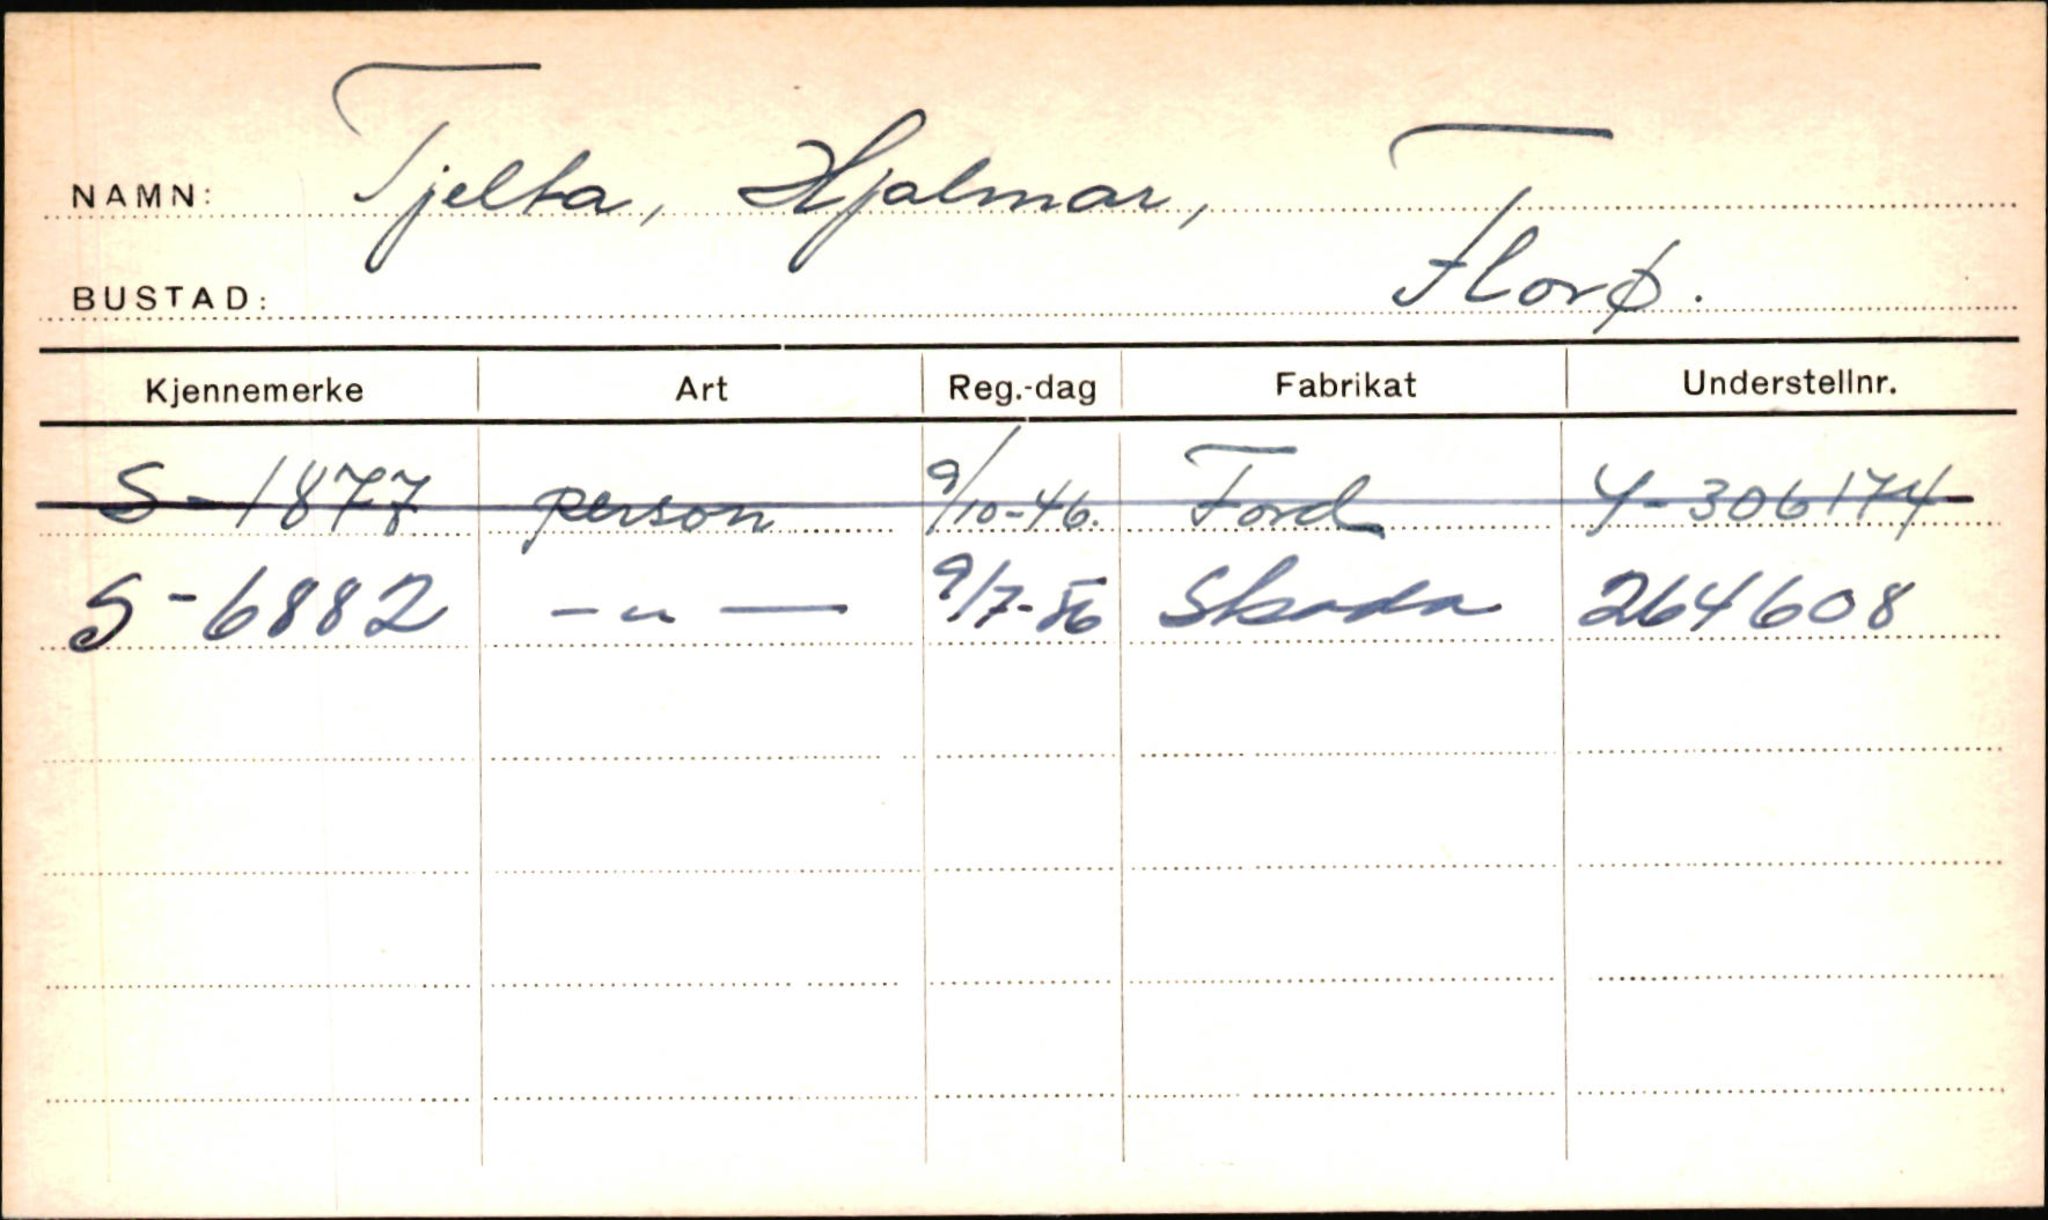 NAMN: Tjelta, Hjalmar,
BUSTAD: Florø.
Kjennemerke Art Reg.-dag Fabrikat Understellnr.
S-1877 person 9/10-46. Ford Y-306174
S-6882 -"- 9/7-56 Skoda 264608